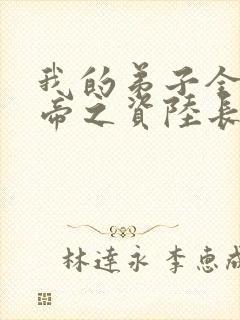 我的弟子全
帝之資陸長
林達永 李惠成